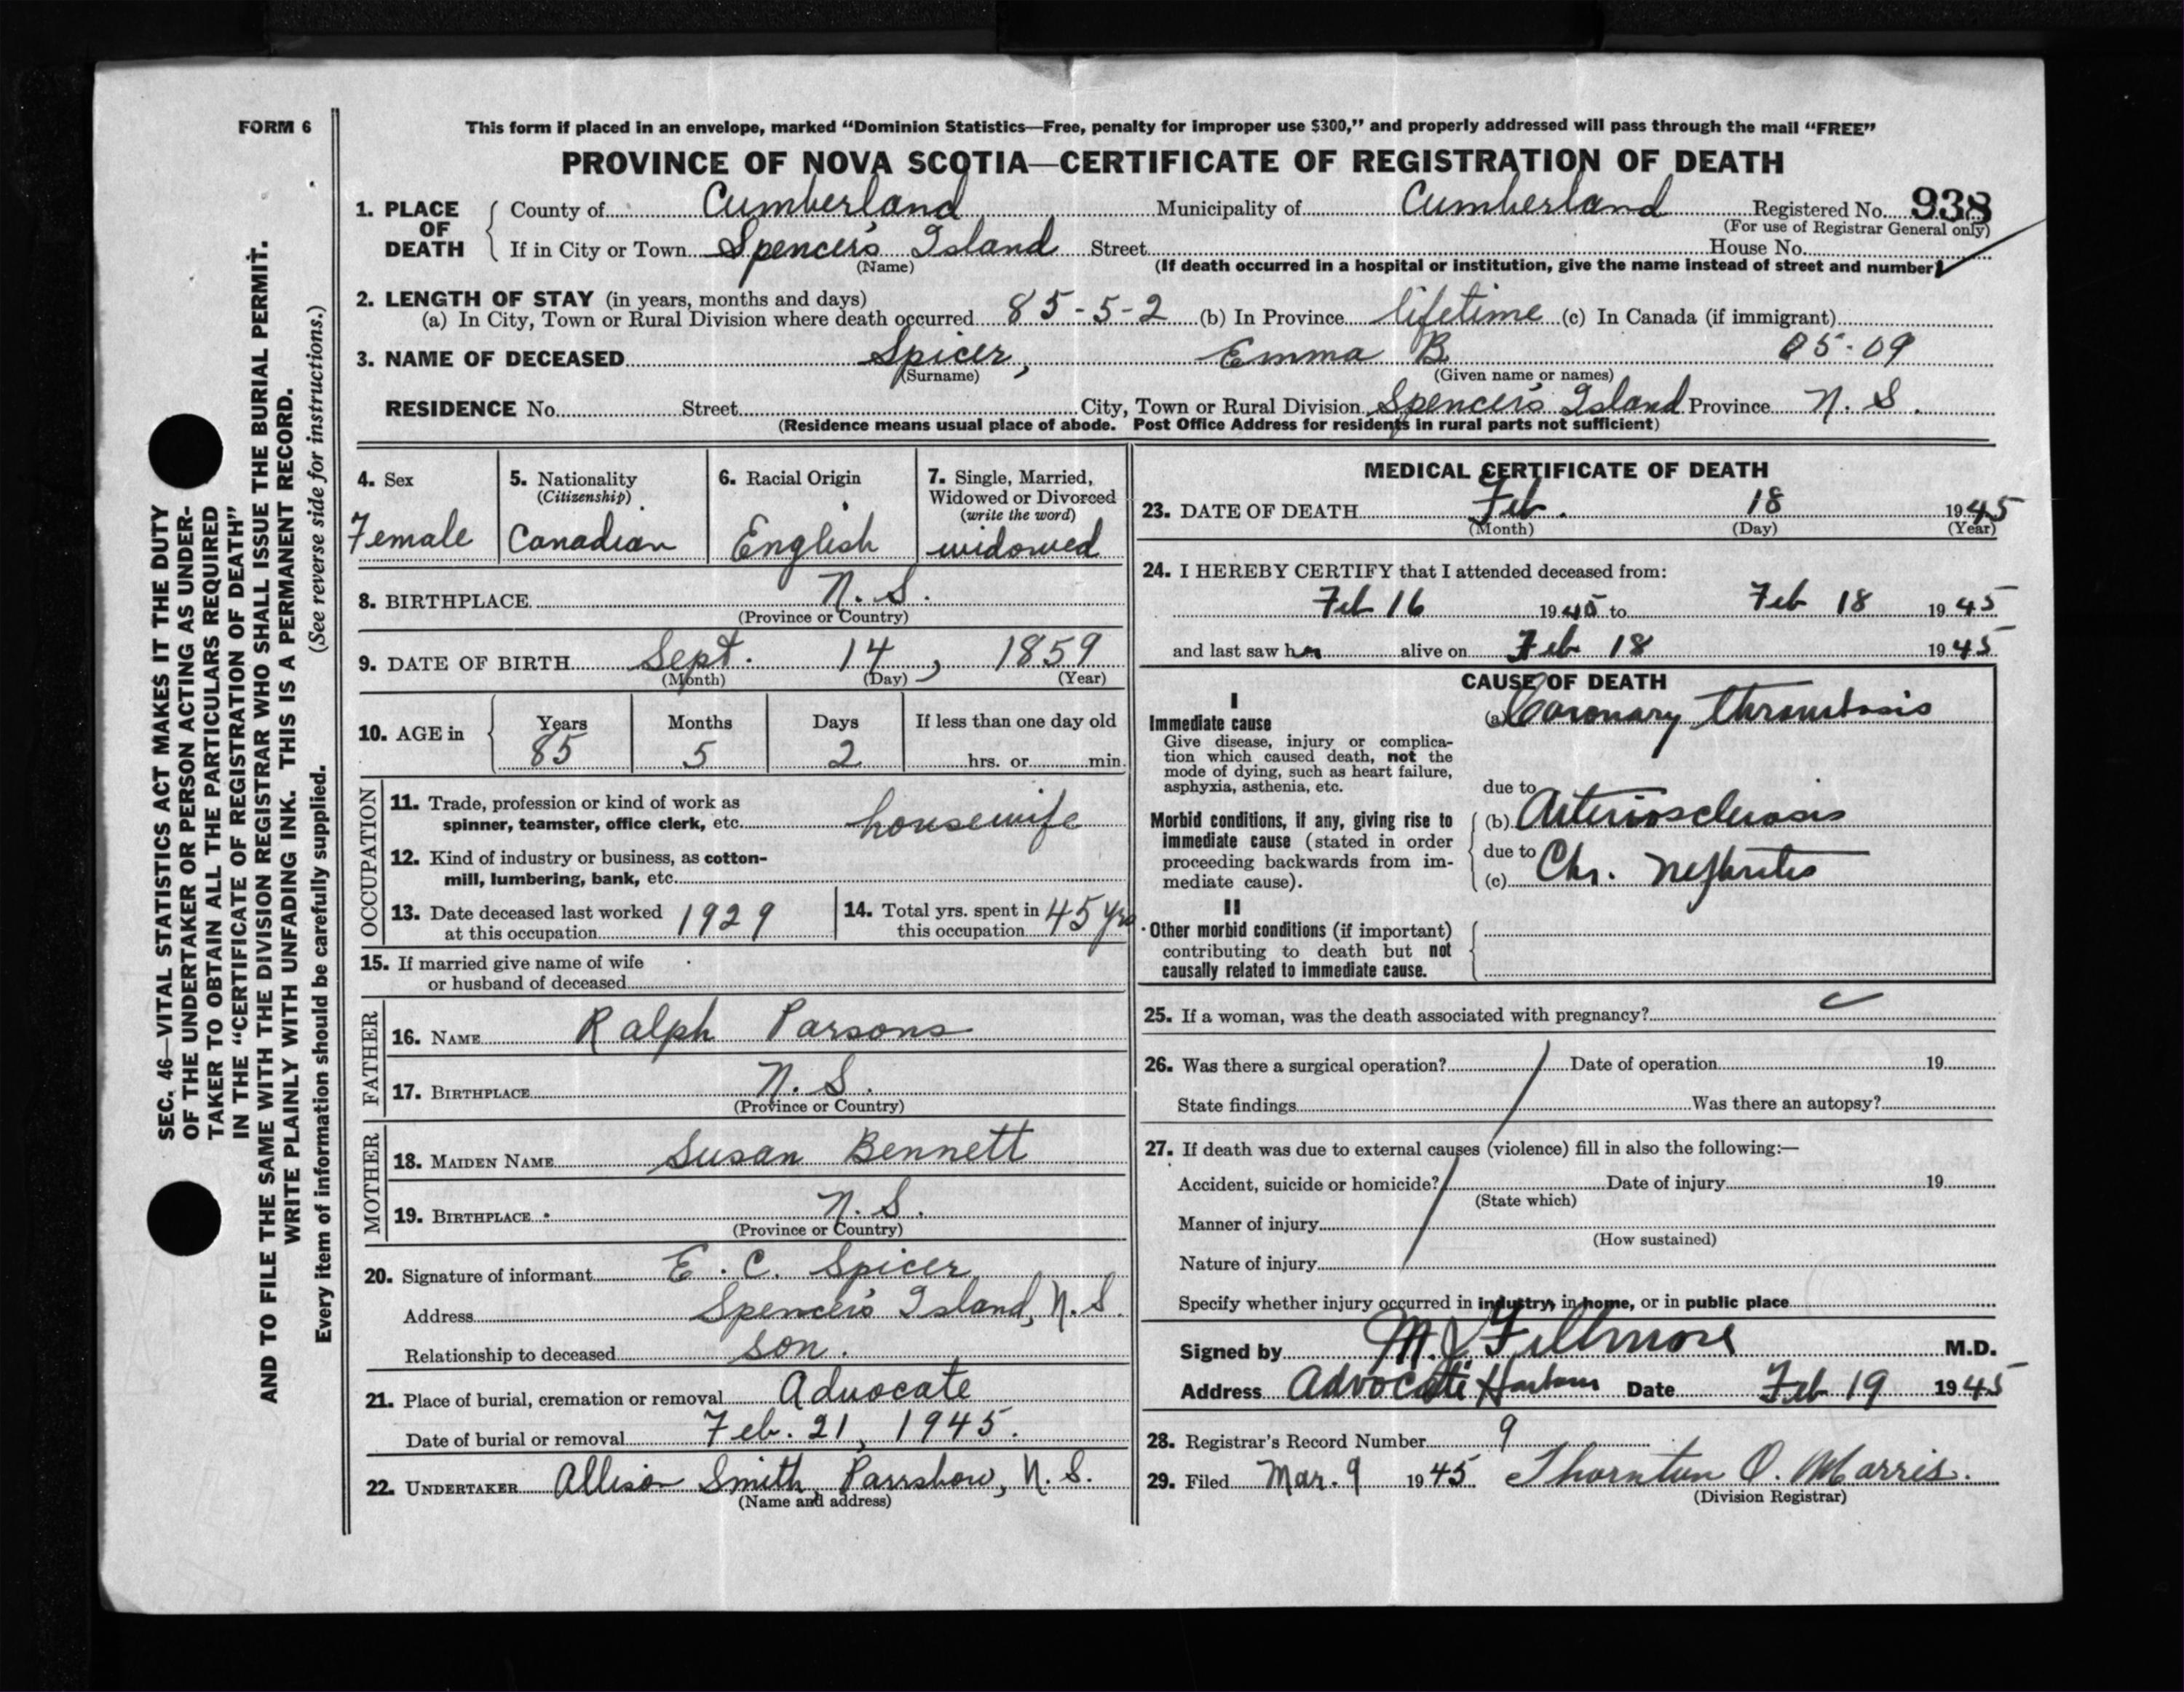 FORM 6
This form if placed in an envelope, marked "Dominion Statistics—Free, penalty for improper use $300," and properly addressed will pass through the mail "FREE"
PROVINCE OF NOVA SCOTIA—CERTIFICATE OF REGISTRATION OF DEATH
1. PLACE OF DEATH County of Cumberland Municipality of Cumberland Registered No. 938
(For use of Registrar General only)
If in City or Town Spencer's Island Street House No.
(Name) (If death occurred in a hospital or institution, give the name instead of street and number)
2. LENGTH OF STAY (in years, months and days)
(a) In City, Town or Rural Division where death occurred 85-5-2 (b) In Province lifetime (c) In Canada (if immigrant)
3. NAME OF DECEASED Spicer, Emma B. 05-09
(Surname) (Given name or names)
RESIDENCE No. Street City, Town or Rural Division Spencer's Island Province N. S.
(Residence means usual place of abode. Post Office Address for residents in rural parts not sufficient)
4. Sex
Female
5. Nationality
(Citizenship)
Canadian
6. Racial Origin
English
7. Single, Married,
Widowed or Divorced
(write the word)
widowed
8. BIRTHPLACE N. S.
(Province or Country)
9. DATE OF BIRTH Sept. 14, 1859
(Month) (Day) (Year)
10. AGE in Years Months Days If less than one day old
85 5 2 hrs. or min.
OCCUPATION
11. Trade, profession or kind of work as
spinner, teamster, office clerk, etc. housewife
12. Kind of industry or business, as cotton-
mill, lumbering, bank, etc.
13. Date deceased last worked
at this occupation 1929
14. Total yrs. spent in
this occupation 45 yrs
15. If married give name of wife
or husband of deceased
FATHER
16. NAME Ralph Parsons
17. BIRTHPLACE N. S.
(Province or Country)
MOTHER
18. MAIDEN NAME Susan Bennett
19. BIRTHPLACE N. S.
(Province or Country)
20. Signature of informant E. C. Spicer
Address Spencer's Island, N. S.
Relationship to deceased son.
21. Place of burial, cremation or removal Advocate
Date of burial or removal Feb. 21, 1945.
22. UNDERTAKER Allison Smith, Parrsboro, N. S.
(Name and address)
MEDICAL CERTIFICATE OF DEATH
23. DATE OF DEATH Feb. 18 1945
(Month) (Day) (Year)
24. I HEREBY CERTIFY that I attended deceased from:
Feb 16 1945 to Feb 18 1945
and last saw her alive on Feb 18 1945
CAUSE OF DEATH
I
Immediate cause
Give disease, injury or complica-
tion which caused death, not the
mode of dying, such as heart failure,
asphyxia, asthenia, etc.
(a) Coronary thrombosis
due to
Morbid conditions, if any, giving rise to
immediate cause (stated in order
proceeding backwards from im-
mediate cause).
(b) Arteriosclerosis
due to
(c) Chr. Nephritis
II
Other morbid conditions (if important)
contributing to death but not
causally related to immediate cause.
25. If a woman, was the death associated with pregnancy?
26. Was there a surgical operation? Date of operation 19
State findings Was there an autopsy?
27. If death was due to external causes (violence) fill in also the following:—
Accident, suicide or homicide? Date of injury 19
(State which)
Manner of injury
(How sustained)
Nature of injury
Specify whether injury occurred in industry, in home, or in public place
Signed by M. J. Fillmore M.D.
Address Advocate Harbour Date Feb 19 1945
28. Registrar's Record Number 9
29. Filed Mar. 9 1945 Thornton O. Morris.
(Division Registrar)
SEC. 46—VITAL STATISTICS ACT MAKES IT THE DUTY
OF THE UNDERTAKER OR PERSON ACTING AS UNDER-
TAKER TO OBTAIN ALL THE PARTICULARS REQUIRED
IN THE "CERTIFICATE OF REGISTRATION OF DEATH"
AND TO FILE THE SAME WITH THE DIVISION REGISTRAR WHO SHALL ISSUE THE BURIAL PERMIT.
WRITE PLAINLY WITH UNFADING INK. THIS IS A PERMANENT RECORD.
Every item of information should be carefully supplied. (See reverse side for instructions.)